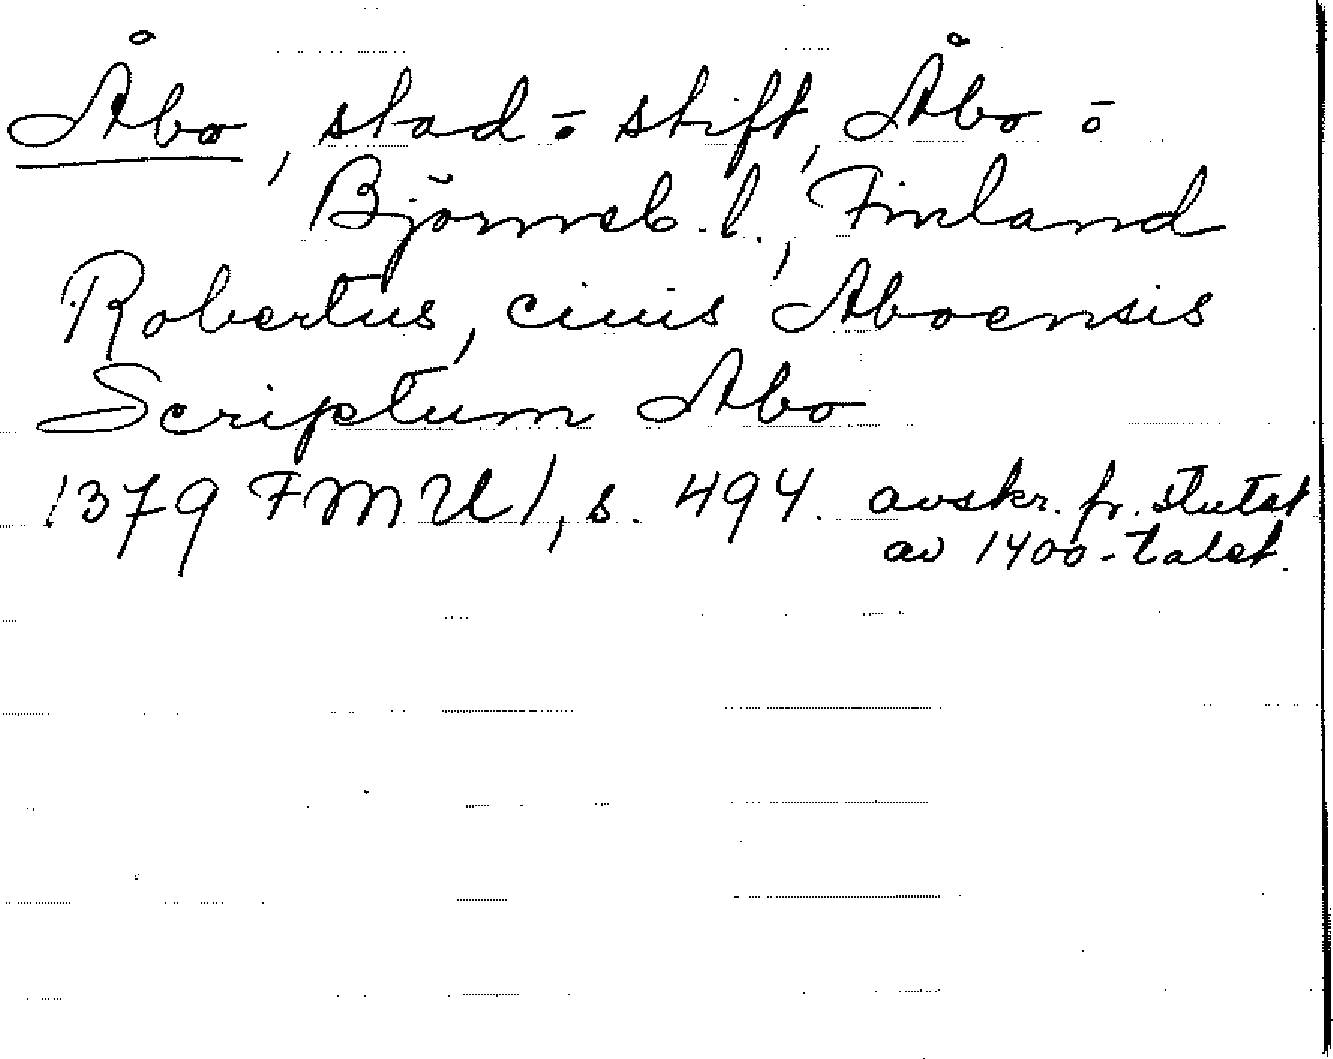 Åbo, stad o. stift, Åbo o
Björneb. l., Finland
Robertus, ciuis Aboensis
Scriptum Abo
1379 FMU 1, s. 494. avskr. fr. slutet
av 1400-talet.